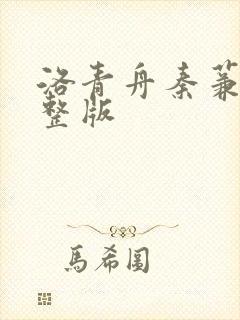 洛青舟秦蒹
整版
馬希圖